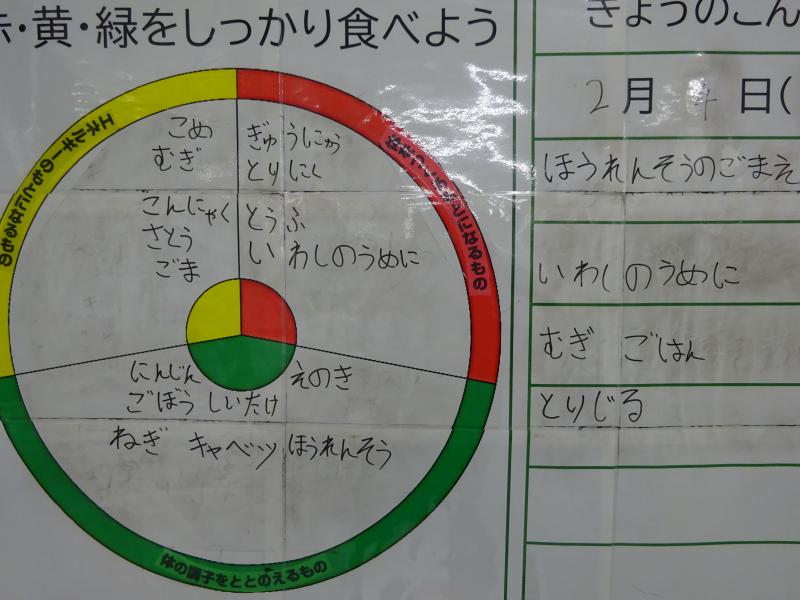 ・黄・緑をしっかり食べよう
エネルギーのもとになるもの
になるもの
体の調子をととのえるもの
こめ
むぎ
ごんにゃく
さとう
ごま
ぎゅうにゅう
とりにく
とうふ
いわしのうめに
にんじん
ごぼう しいたけ
えのき
ねぎ キャベツ ほうれんそう
きょうのこん
2月4日(
ほうれんそうのごまえ
いわしのうめに
むぎ ごはん
とりじる